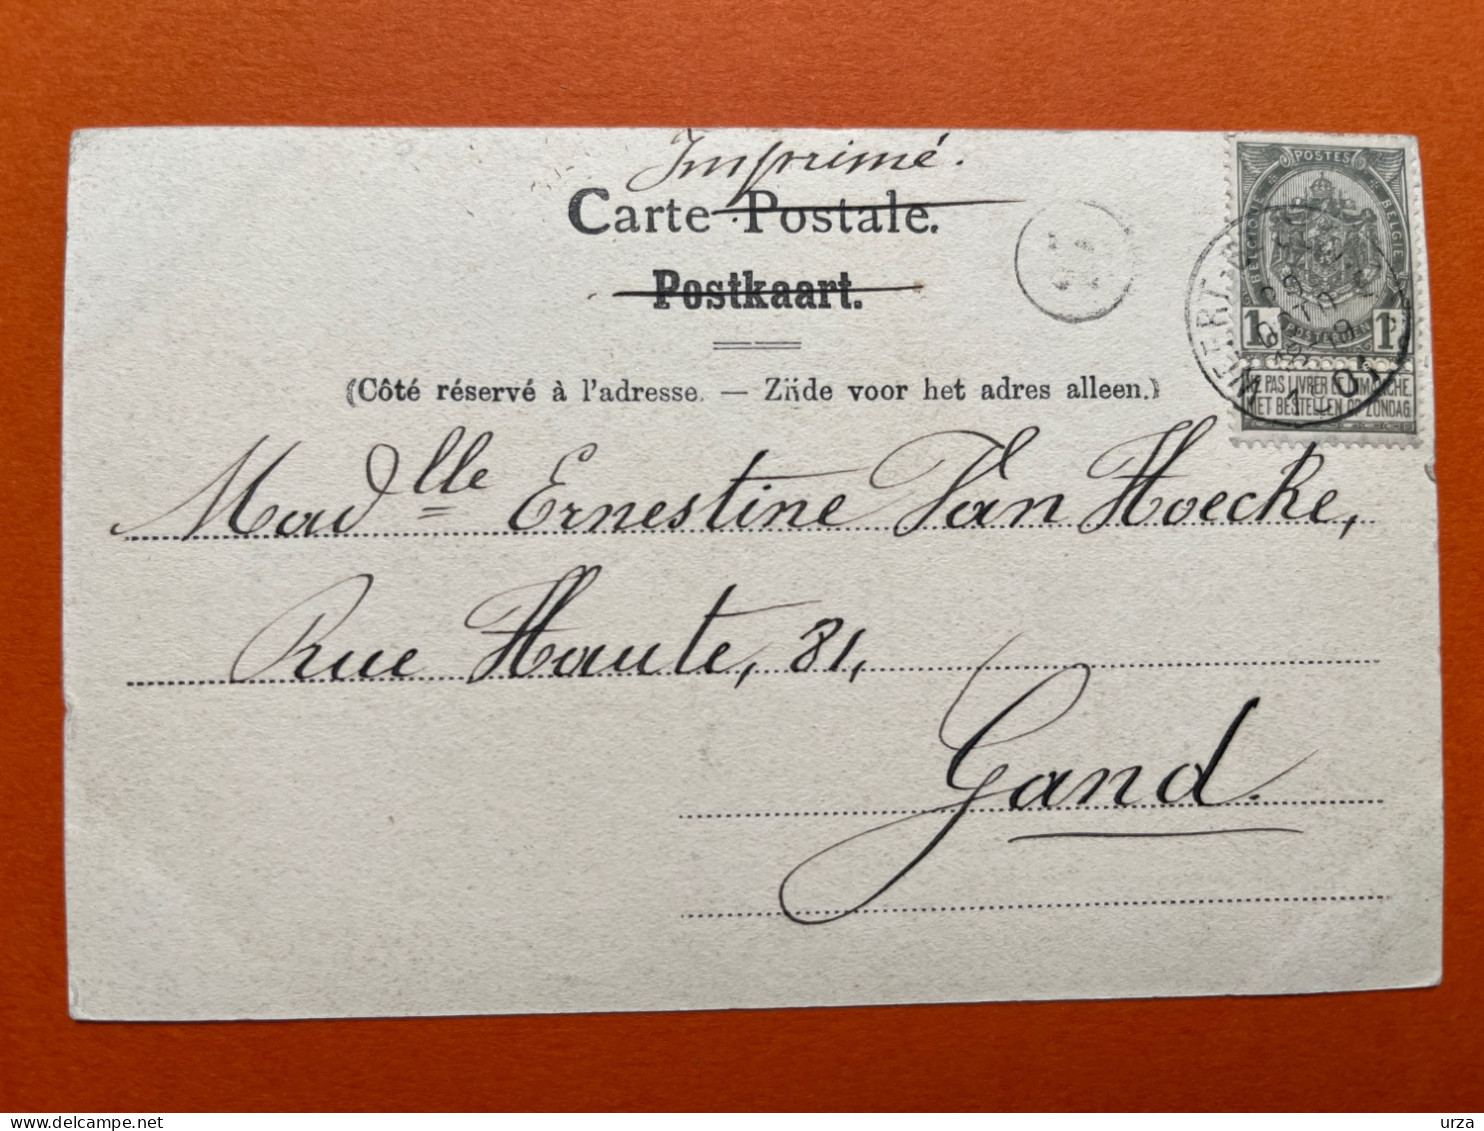 Imprimé.
Carte Postale.
Postkaart.
(Côté réservé à l'adresse. — Zijde voor het adres alleen.)
POSTES
BELGIQUE
BELGIE
1
1
POSTERIJEN
NE PAS LIVRER LE DIMANCHE
NIET BESTELLEN OP ZONDAG
Madlle Ernestine Van Hoecke,
Rue Haute, 81,
Gand.
delcampe.net
urza